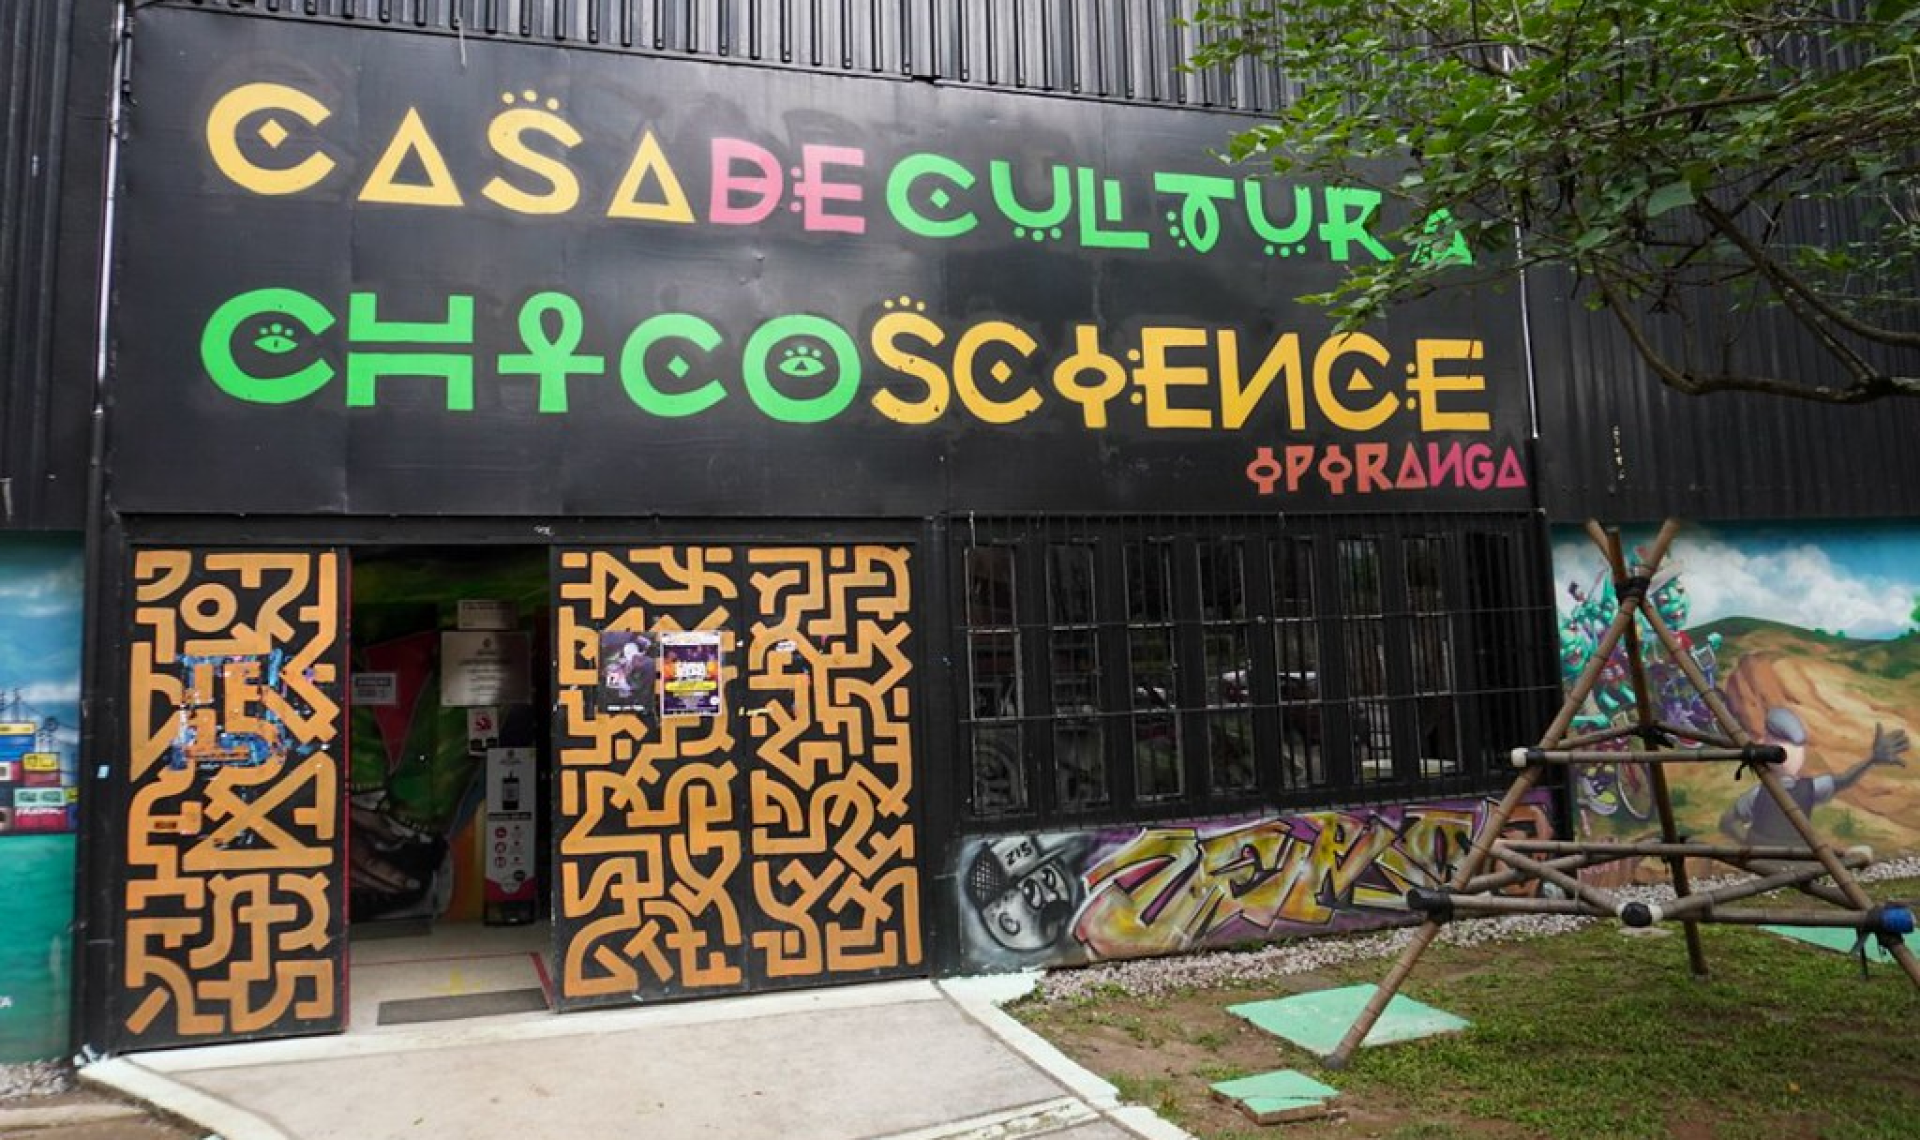 CASA DE CULTURA
CHICO SCIENCE
OPORANGA
Z15